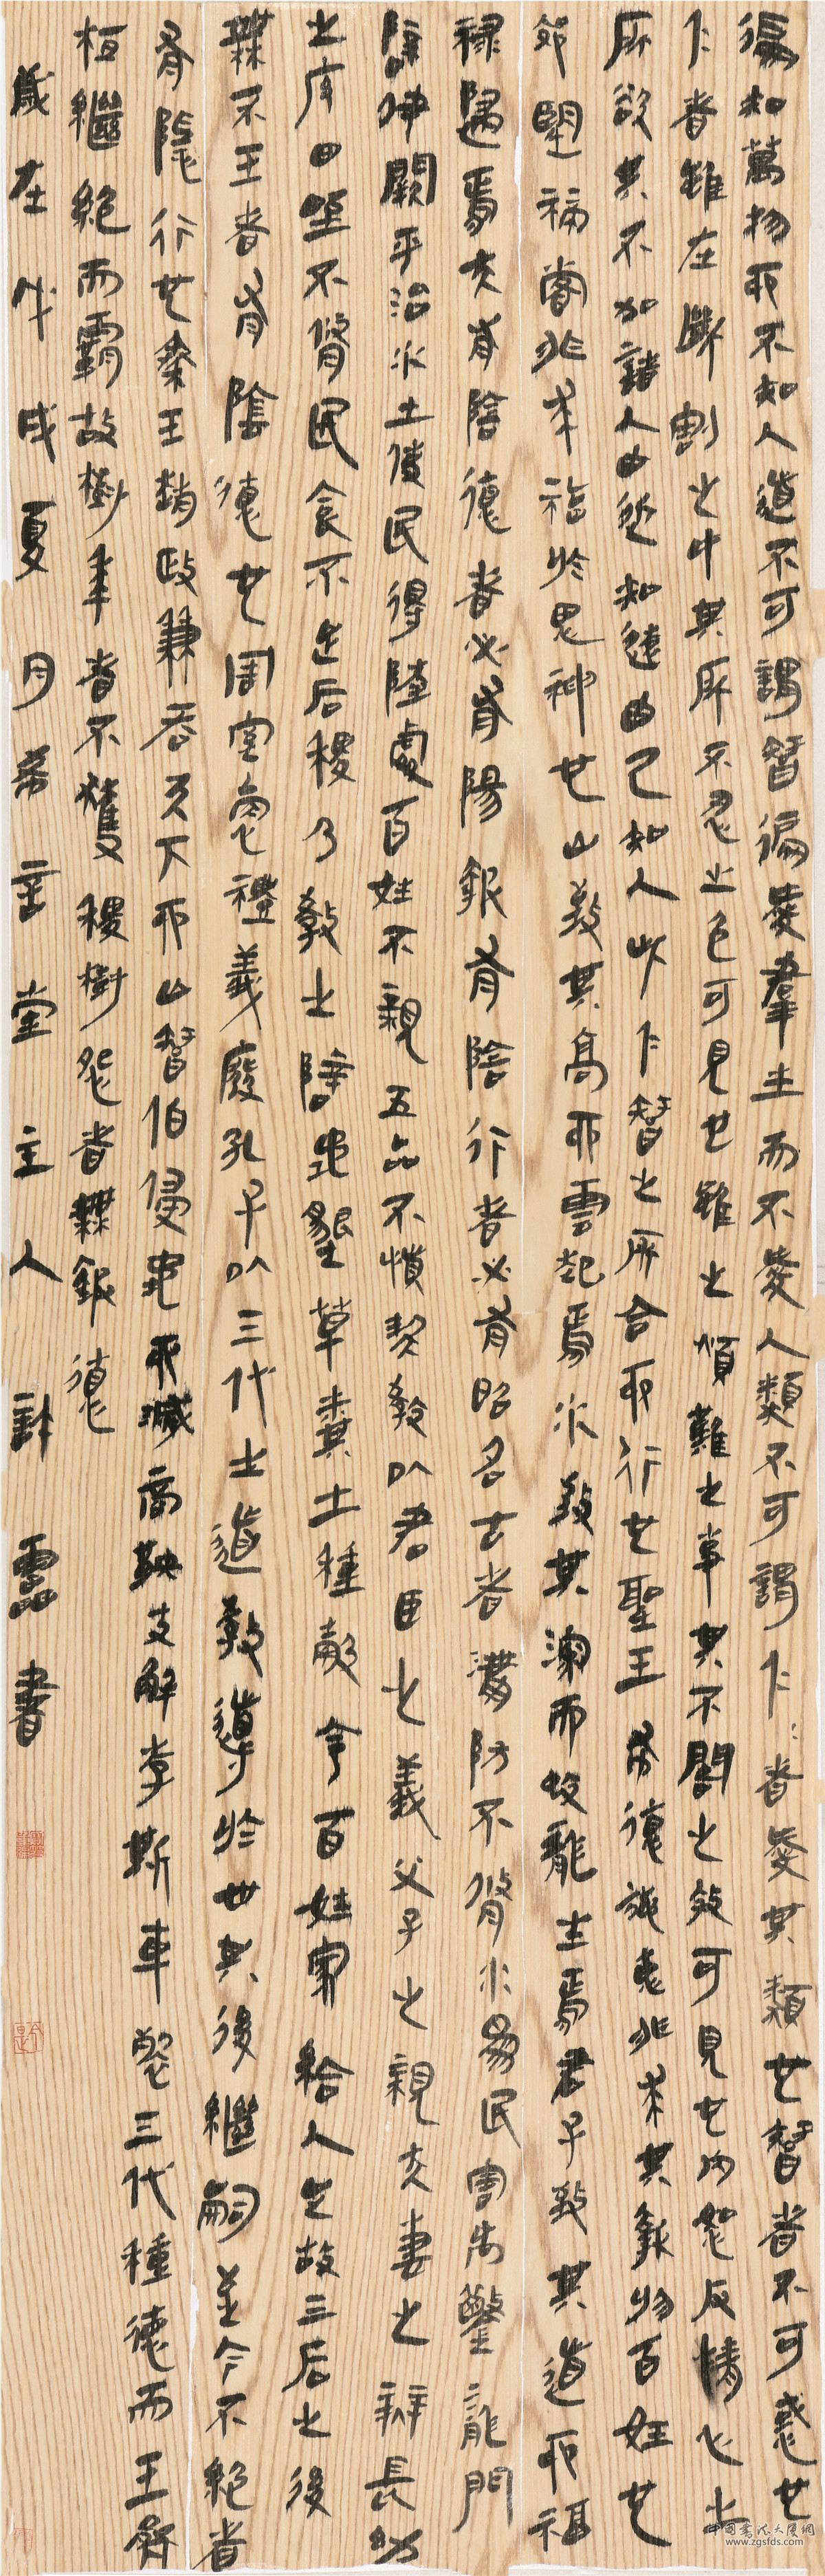 徧知萬物而不知人道不可謂智徧愛羣生而不愛人類不可謂仁仁者愛其類也智者不可惑也
仁者雖在斷割之中其所不忍之色可見也雖之煩難之事其不闇之效可見也內恕反情心之
所欲其不加諸人由近知遠由己知人此仁智之所合而行也聖王布德施惠非求其報於百姓也
郊望禘嘗非求福於鬼神也山致其高而雲起焉水致其深而蛟龍生焉君子致其道而福
祿歸焉夫有陰德者必有陽報有陰行者必有昭名古者溝防不脩水為民害禹鑿龍門
辟伊闕平治水土使民得陸處百姓不親五品不慎契教以君臣之義父子之親夫妻之辯長幼
之序田野不脩民食不足后稷乃教之辟地墾草糞土種穀令百姓家給人足故三后之後
無不王者有陰德也周室衰禮義廢孔子以三代之道教導於世其後繼嗣至今不絕者
有隱行也秦王趙政兼吞天下而亡智伯侵地而滅商鞅支解李斯車裂三代種德而王齊
桓繼絕而霸故樹黍者不獲稷樹怨者無報德
歲在戊戌夏月希言堂主人書
中国书法大厦网
www.zgsfds.com